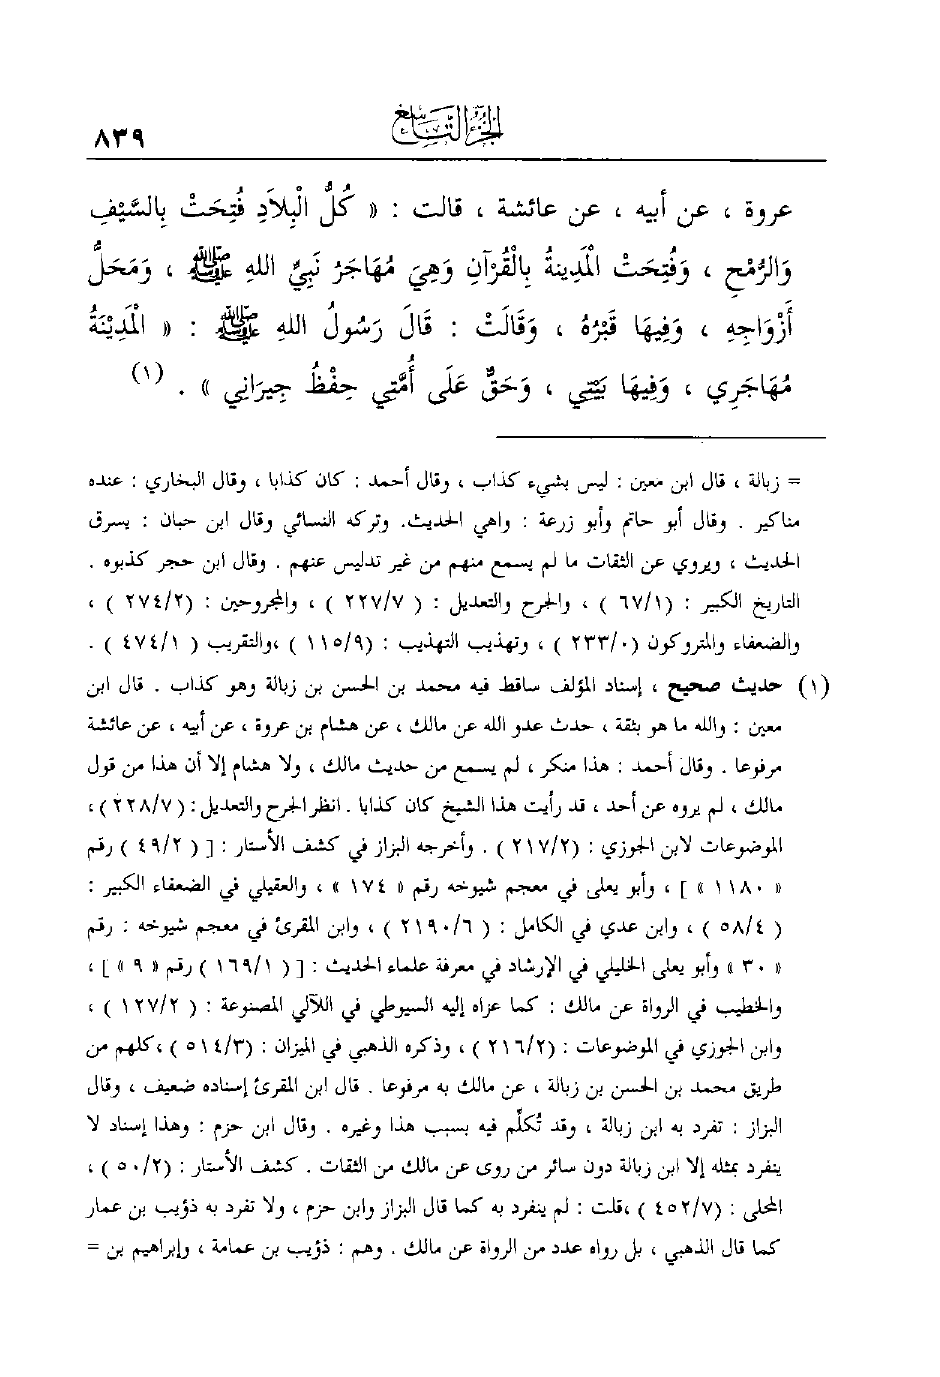 الجزء التاسع
٨٣٩
عروة ، عن أبيه ، عن عائشة ، قالت : « كُلُّ الْبِلاَدِ فُتِحَتْ بِالسَّيْفِ
وَالرُّمْحِ ، وَفُتِحَتْ الْمَدِينةُ بِالْقُرْآنِ وَهِيَ مُهَاجَرُ نَبِيِّ اللهِ ﷺ ، وَمَحَلُّ
أَزْوَاجِهِ ، وَفِيهَا قَبْرُهُ ، وَقَالَتْ : قَالَ رَسُولُ اللهِ ﷺ : « الْمَدِيْنَةُ
مُهَاجَرِي ، وَفِيهَا بَيْتِي ، وَحَقٌّ عَلَى أُمَّتِي حِفْظُ جِيرَانِي » . (١)
= زبالة ، قال ابن معين : ليس بشيء كذاب ، وقال أحمد : كان كذابا ، وقال البخاري : عنده
مناكير . وقال أبو حاتم وأبو زرعة : واهي الحديث. وتركه النسائي وقال ابن حبان : يسرق
الحديث ، ويروي عن الثقات ما لم يسمع منهم من غير تدليس عنهم . وقال ابن حجر كذبوه .
التاريخ الكبير : (٦٧/١ ) ، والجرح والتعديل : ( ٢٢٧/٧ ) ، والمجروحين : (٢٧٤/٢ ) ،
والضعفاء والمتروكون (٢٣٣/٠ ) ، وتهذيب التهذيب : (١١٥/٩ ) ،والتقريب ( ٤٧٤/١ ) .
(١) حديث صحيح ، إسناد المؤلف ساقط فيه محمد بن الحسن بن زبالة وهو كذاب . قال ابن
معين : والله ما هو بثقة ، حدث عدو الله عن مالك ، عن هشام بن عروة ، عن أبيه ، عن عائشة
مرفوعا . وقال أحمد : هذا منكر ، لم يسمع من حديث مالك ، ولا هشام إلا أن هذا من قول
مالك ، لم يروه عن أحد ، قد رأيت هذا الشيخ كان كذابا . انظر الجرح والتعديل : (٢٢٨/٧ )،
الموضوعات لابن الجوزي : (٢١٧/٢ ) . وأخرجه البزاز في كشف الأستار : [ ( ٤٩/٢ ) رقم
« ١١٨٠ » ] ، وأبو يعلى في معجم شيوخه رقم « ١٧٤ » ، والعقيلي في الضعفاء الكبير :
( ٥٨/٤ ) ، وابن عدي في الكامل : ( ٢١٩٠/٦ ) ، وابن المقرئ في معجم شيوخه : رقم
« ٣٠ » وأبو يعلى الخليلي في الإرشاد في معرفة علماء الحديث : [ ( ١٦٩/١ ) رقم « ٩ » ] ،
والخطيب في الرواة عن مالك : كما عزاه إليه السيوطي في اللآلي المصنوعة : ( ١٢٧/٢ ) ،
وابن الجوزي في الموضوعات : (٢١٦/٢ ) ، وذكره الذهبي في الميزان : (٥١٤/٣ ) ،كلهم من
طريق محمد بن الحسن بن زبالة ، عن مالك به مرفوعا . قال ابن المقرئ إسناده ضعيف ، وقال
البزاز : تفرد به ابن زبالة ، وقد تُكلِّم فيه بسبب هذا وغيره . وقال ابن حزم : وهذا إسناد لا
ينفرد بمثله إلا ابن زبالة دون سائر من روى عن مالك من الثقات . كشف الأستار : (٥٠/٢ ) ،
المحلى : (٤٥٢/٧ ) ،قلت : لم ينفرد به كما قال البزاز وابن حزم ، ولا تفرد به ذؤيب بن عمار
كما قال الذهبي ، بل رواه عدد من الرواة عن مالك . وهم : ذؤيب بن عمامة ، وإبراهيم بن =